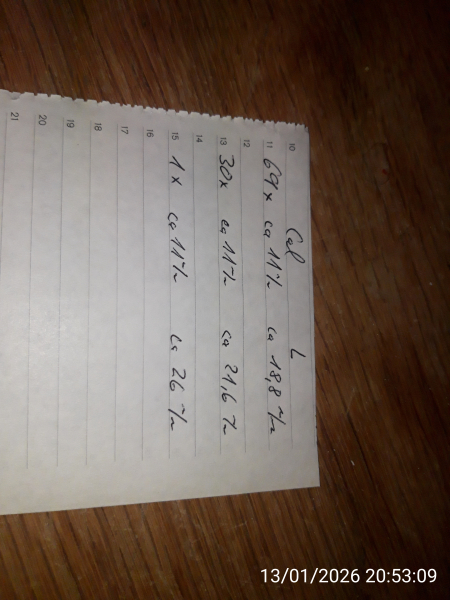 10
Cal L
11 69x ca 11% ca 18,8%
12
13 30x ca 11% ca 21,6%
14
15 1x ca 11% ca 26%
16
17
18
19
20
21
13/01/2026 20:53:09